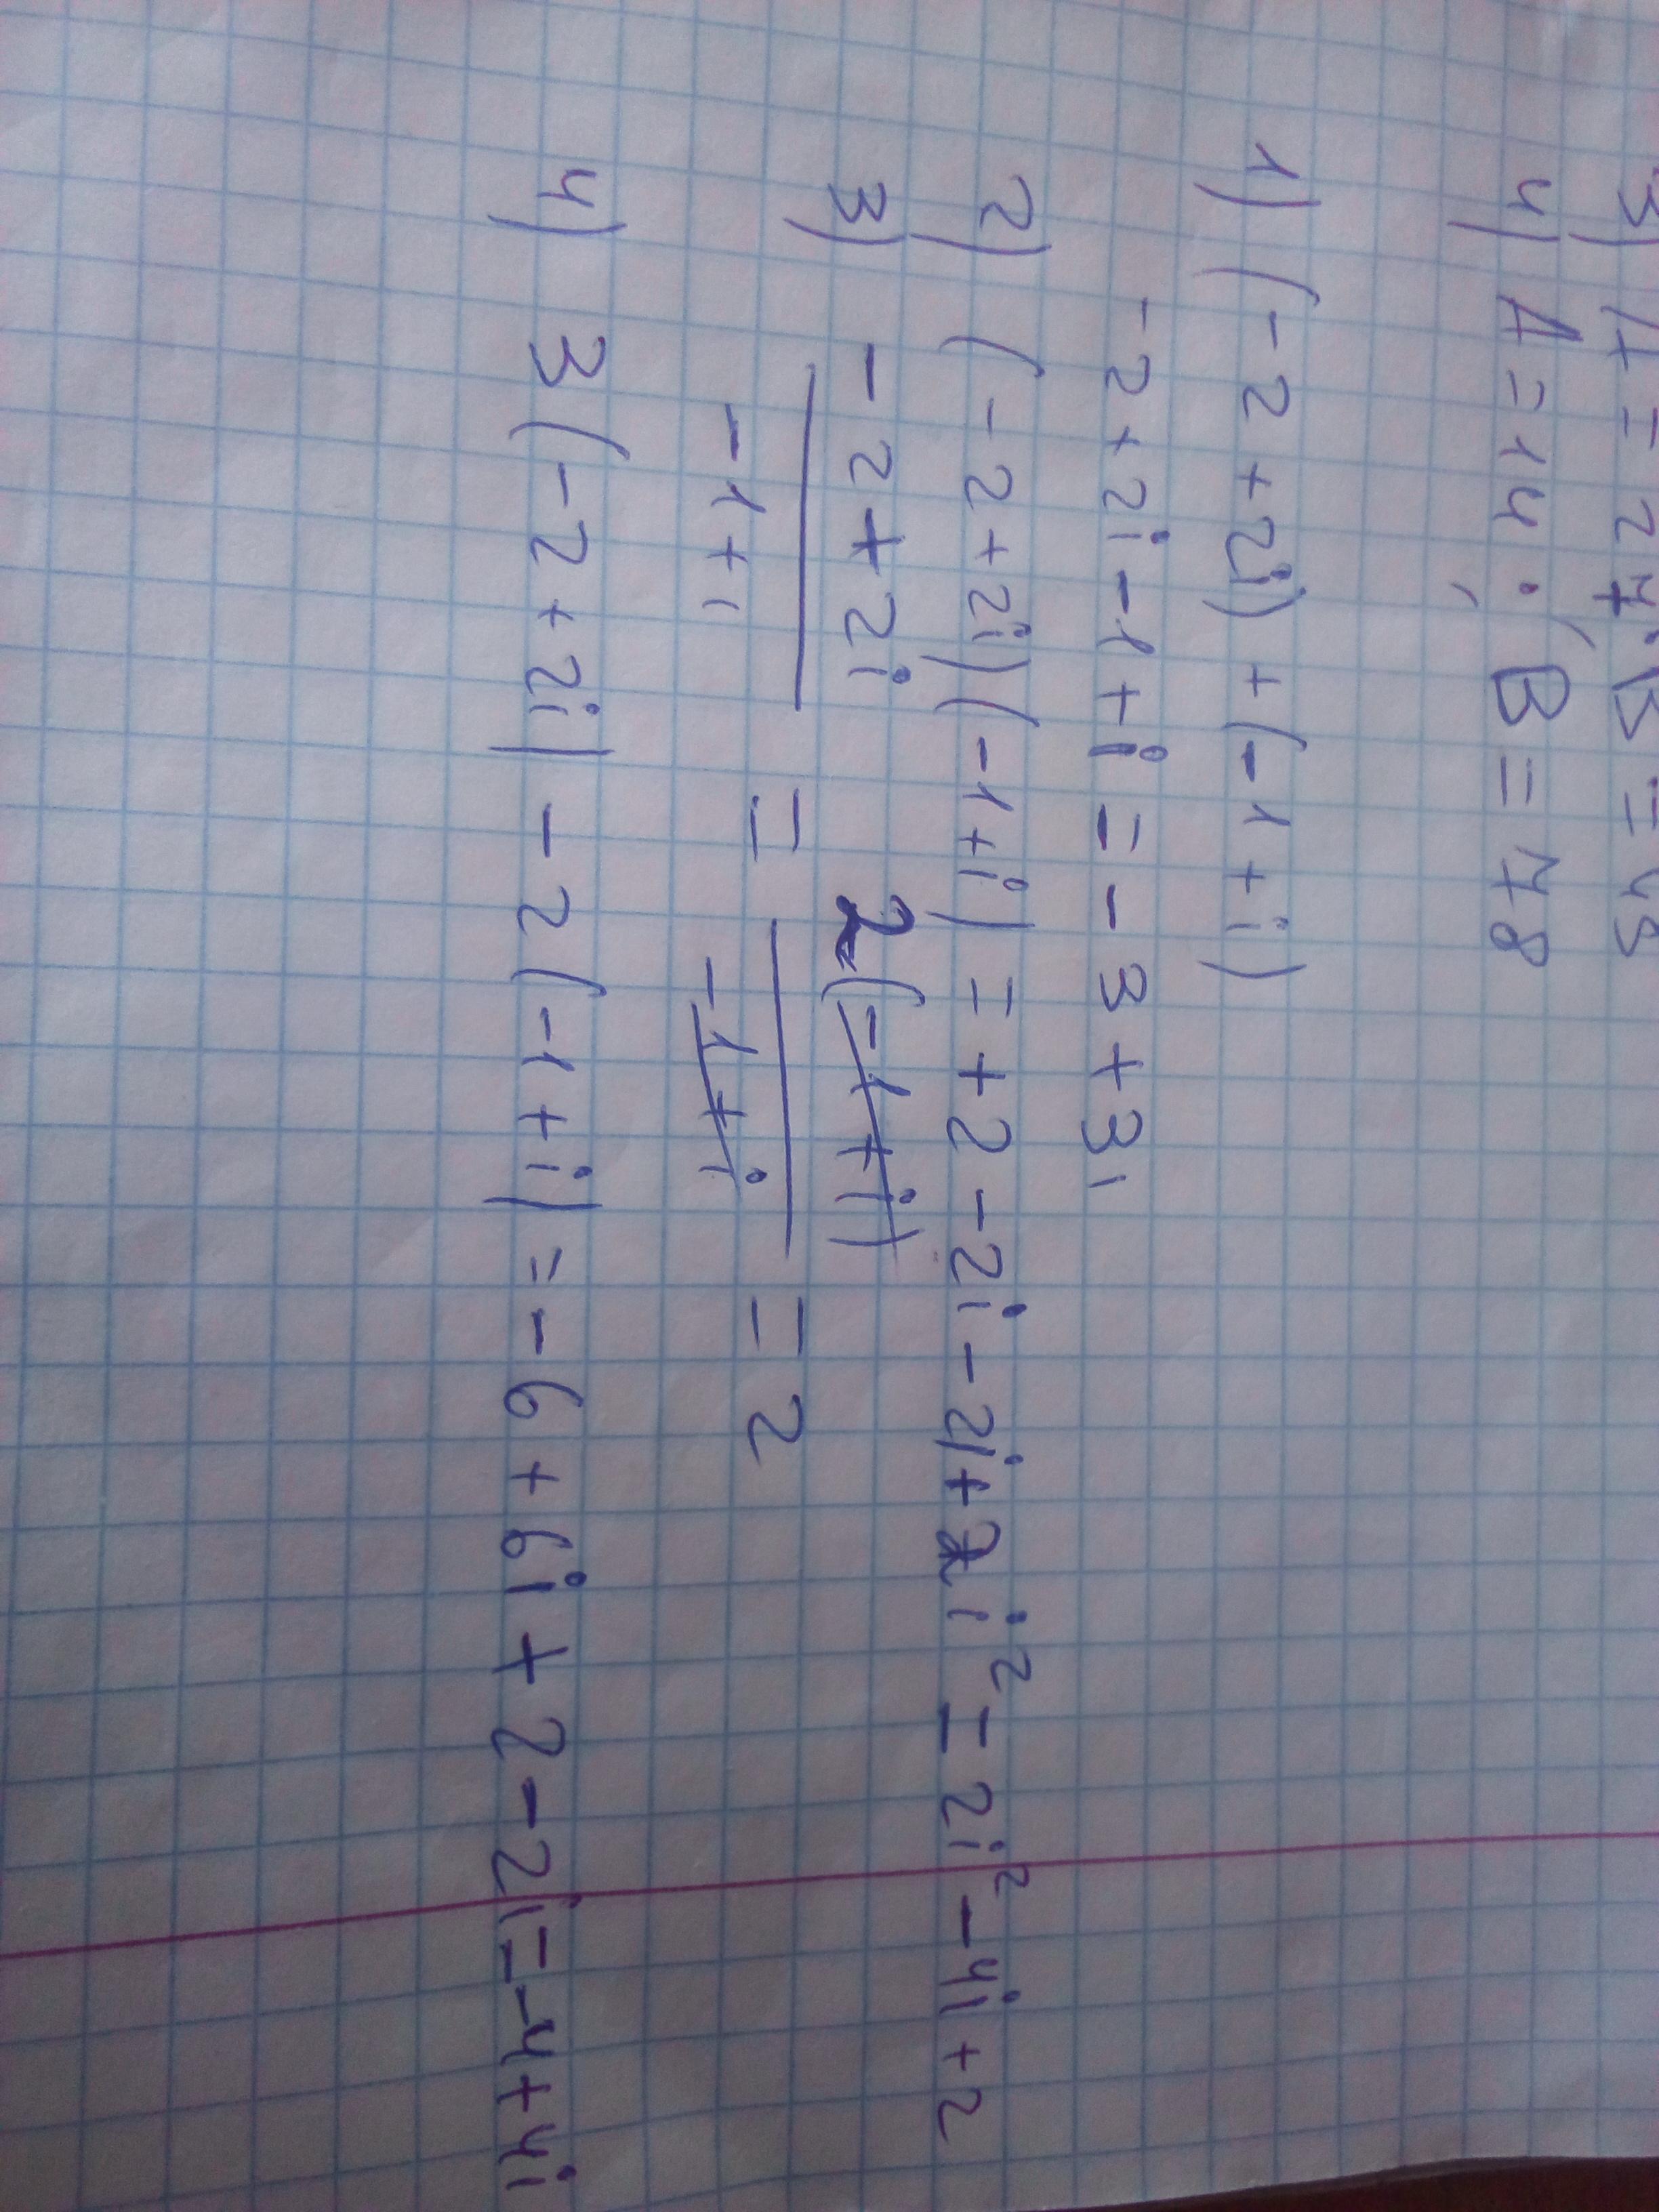 4) A = 14; B = 78
1) (-2+2i) + (-1+i)
-2+2i-1+i = -3+3i
2) (-2+2i)(-1+i) = +2-2i-2i+2i² = 2i²-4i+2
3) -2+2i / -1+i = 2(-1+i) / -1+i = 2
4) 3(-2+2i) - 2(-1+i) = -6+6i+2-2i = -4+4i